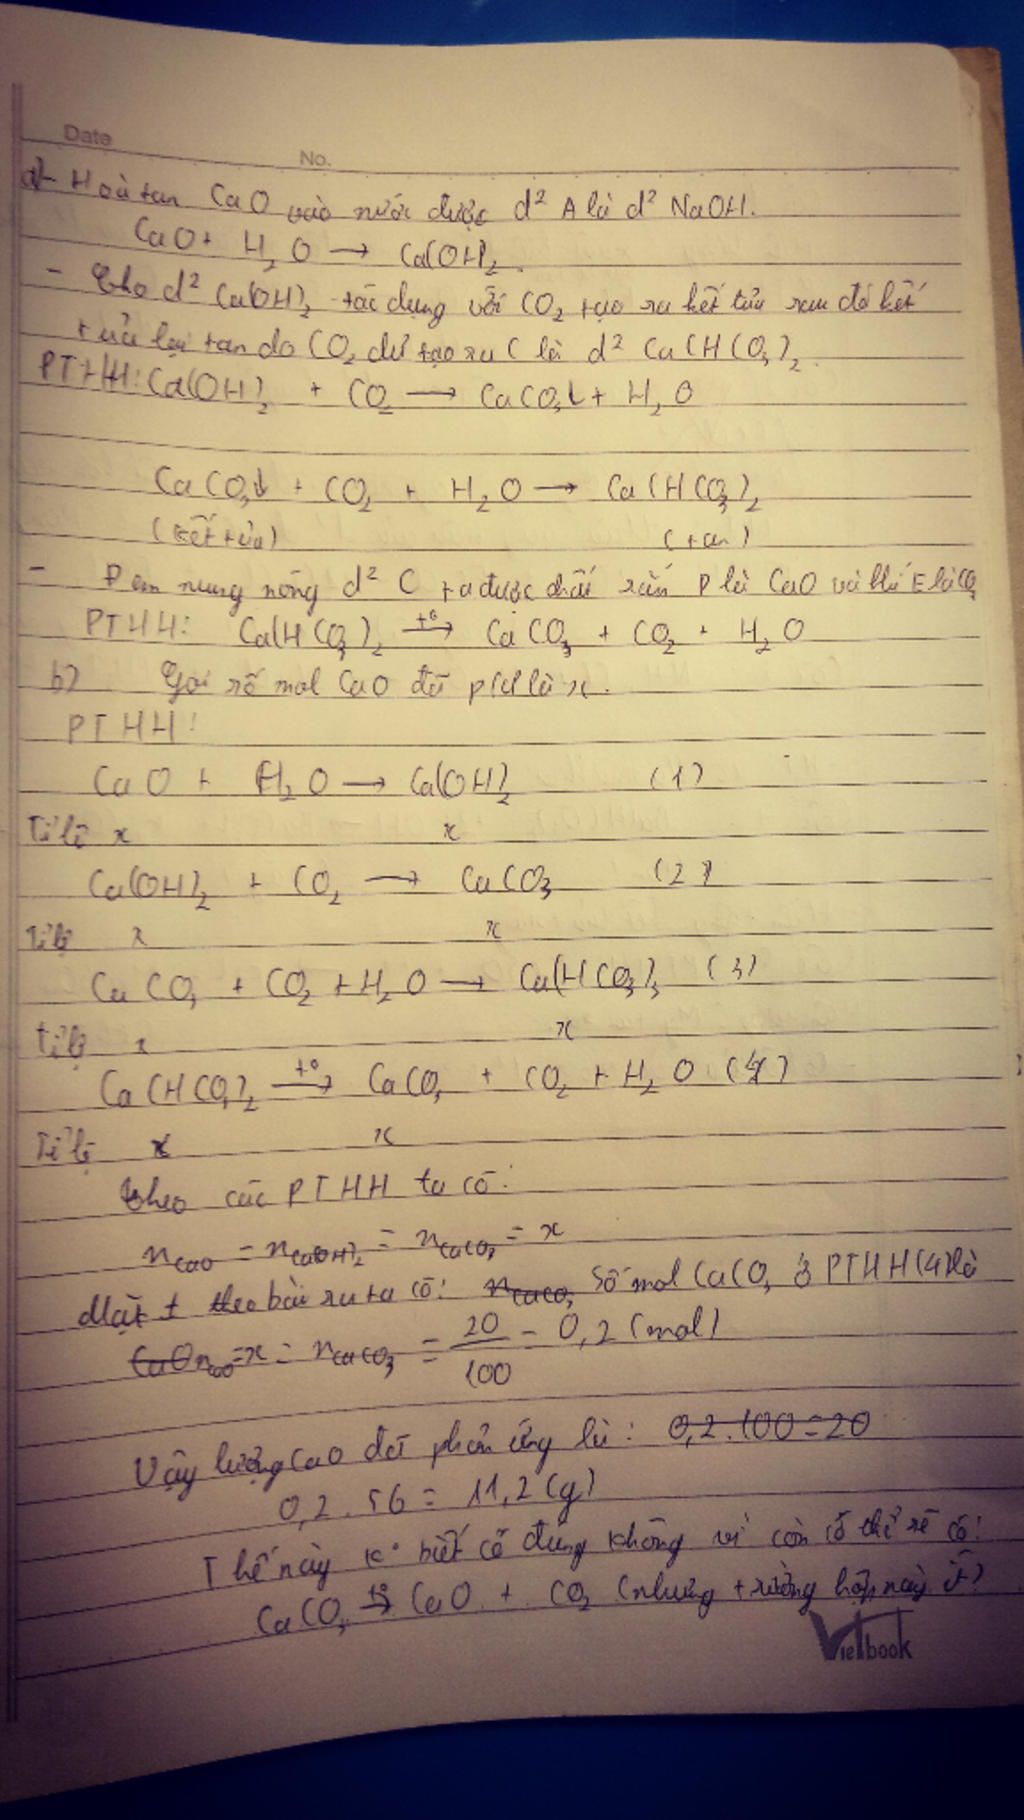 Date
No.
a) - Hoà tan CaO vào nước được d² A là d² NaOH.
CaO + H₂O → Ca(OH)₂.
- Cho d² Ca(OH)₂ tác dụng với CO₂ tạo ra kết tủa sau đó kết
tủa lại tan do CO₂ dư tạo ra C là d² Ca(HCO₃)₂.
PTHH: Ca(OH)₂ + CO₂ → CaCO₃↓ + H₂O
CaCO₃↓ + CO₂ + H₂O → Ca(HCO₃)₂
(kết tủa) (tan)
- Đem nung nóng d² C ta được chất rắn D là CaO và khí E là CO₂
PTHH: Ca(HCO₃)₂ →t° CaCO₃ + CO₂ + H₂O
b) Gọi số mol CaO đã pứ là x.
PTHH:
CaO + H₂O → Ca(OH)₂ (1)
Tỉ lệ x x
Ca(OH)₂ + CO₂ → CaCO₃ (2)
Tỉ lệ x x
CaCO₃ + CO₂ + H₂O → Ca(HCO₃)₂ (3)
tỉ lệ x x
Ca(HCO₃)₂ →t° CaCO₃ + CO₂ + H₂O (4)
Tỉ lệ x x
Theo các PTHH ta có:
nCaO = nCa(OH)₂ = nCaCO₃ = x
Mặt ≠ theo bài ra ta có: nCaCO₃ Số mol CaCO₃ ở PTHH(4) là
= x = nCaCO₃ = 20/100 = 0,2 (mol)
Vậy lượng CaO đã phản ứng là: 0,2.100=20
0,2 . 56 = 11,2 (g)
Thế này k° biết có đúng không vì còn có thể sẽ có:
CaCO₃ →t° CaO + CO₂ (nhưng trường hợp này ít)
Vietbook